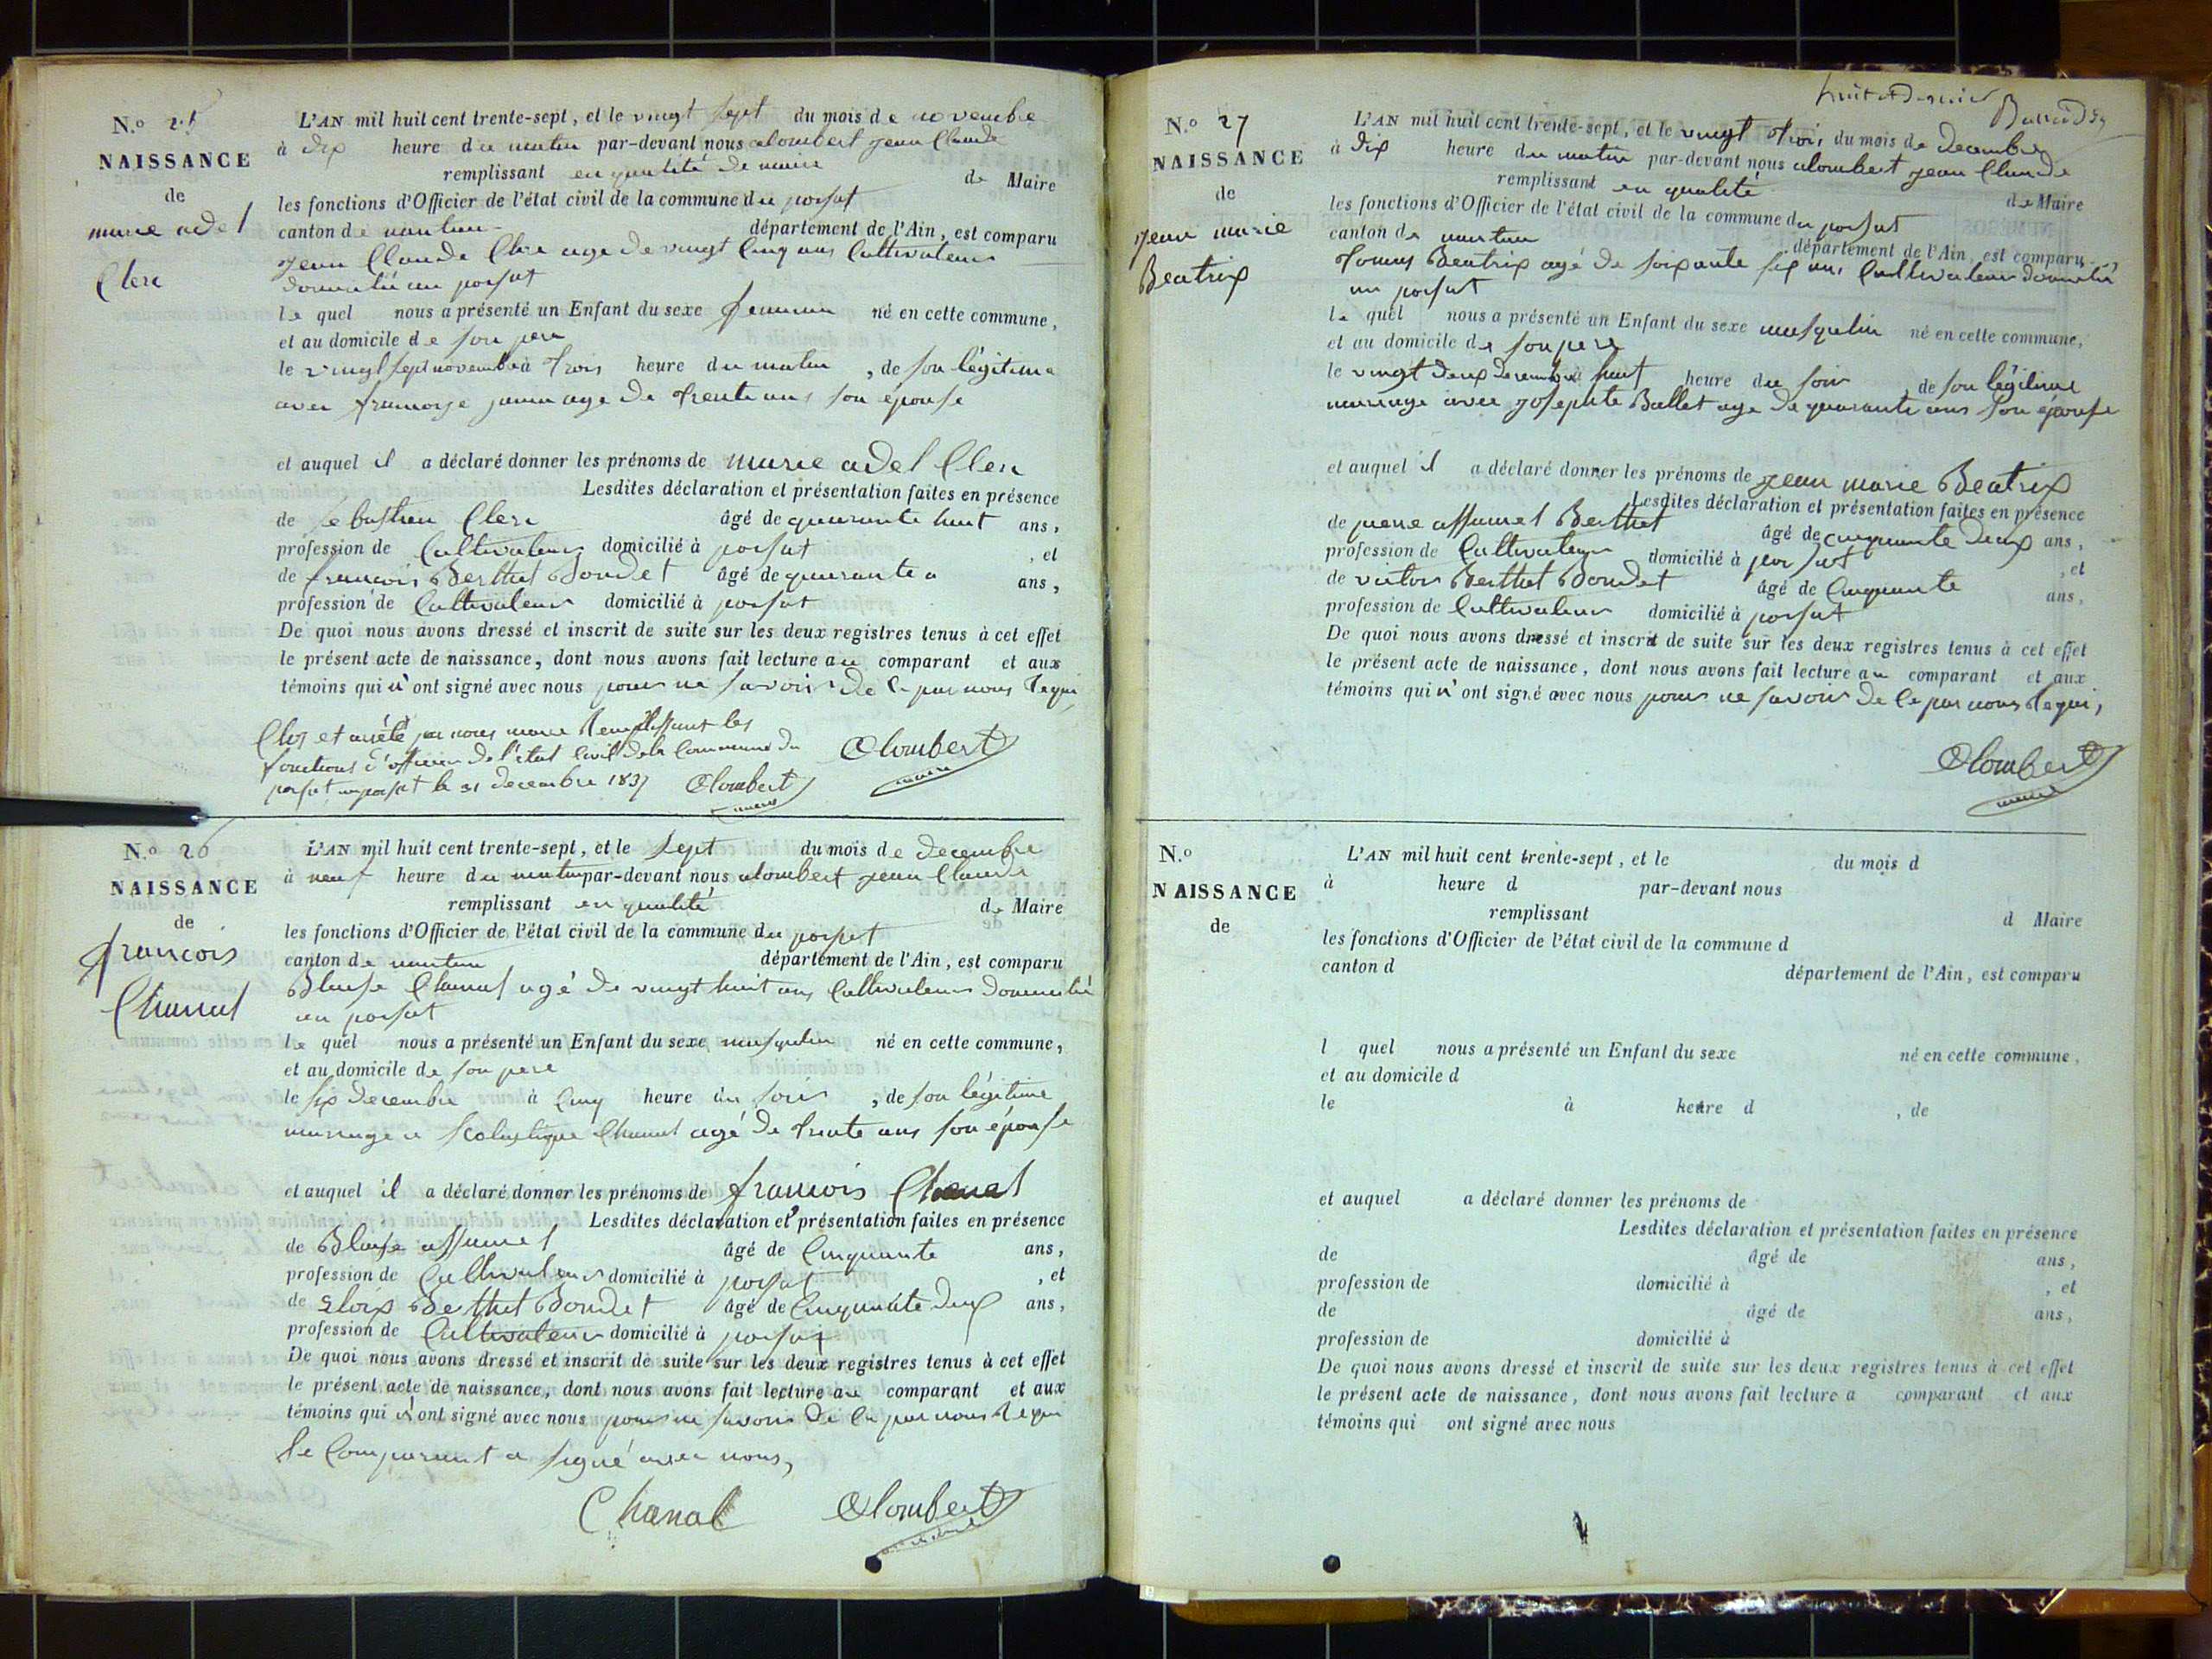 N.° 25
NAISSANCE
de
marie adel
Clerc
L'AN mil huit cent trente-sept, et le vingt sept du mois de novembre
à dix heure du matin par-devant nous alombert jean Claude
remplissant en qualité de maire de Maire
les fonctions d'Officier de l'état civil de la commune du porsat
canton de nantua département de l'Ain, est comparu
jean Claude Clerc age de vingt Cinq ans Cultivateur
domicilié au porsat
le quel nous a présenté un Enfant du sexe feminin né en cette commune,
et au domicile de son pere
le vingt sept novembre à trois heure du matin, de son légitime
avec francoise age de trente ans son épouse
et auquel il a déclaré donner les prénoms de marie adel Clerc
Lesdites déclaration et présentation faites en présence
de sebastien Clerc âgé de quarante huit ans,
profession de Cultivateur domicilié à porsat, et
de francois Berthet Bondet âgé de quarante ans,
profession de Cultivateur domicilié à porsat
De quoi nous avons dressé et inscrit de suite sur les deux registres tenus à cet effet
le présent acte de naissance, dont nous avons fait lecture au comparant et aux
témoins qui n'ont signé avec nous pour ne savoir de ce par nous requi
Clos et arrêté par nous maire Remplissant les
fonctions d'officier de l'état Civil de la Commune du
porsat le 31 decembre 1837 Alombert
maire
Alombert
maire
N.° 26
NAISSANCE
de
francois
Chanal
L'AN mil huit cent trente-sept, et le sept du mois de decembre
à neuf heure du matin par-devant nous alombert jean Claude
remplissant en qualité de Maire
les fonctions d'Officier de l'état civil de la commune du porsat
canton de nantua département de l'Ain, est comparu
Blaise Chanal agé de vingt huit ans Cultivateur domicilié
au porsat
le quel nous a présenté un Enfant du sexe masqulin né en cette commune,
et au domicile de son pere
le six decembre à Cinq heure du soir, de son légitime
mariage a Scolastique Chanal agé de trente ans son épouse
et auquel il a déclaré donner les prénoms de francois Chanal
Lesdites déclaration et présentation faites en présence
de Blaise assumel âgé de Cinquante ans,
profession de Cultivateur domicilié à porsat, et
de Eloix Berthet Bondet âgé de Cinquante deux ans,
profession de Cultivateur domicilié à porsat
De quoi nous avons dressé et inscrit de suite sur les deux registres tenus à cet effet
le présent acte de naissance, dont nous avons fait lecture au comparant et aux
témoins qui n'ont signé avec nous pour ne savoir de ce par nous requi
le Comparant a signé avec nous,
Chanal Alombert
maire
huit et dernier
N.° 27
NAISSANCE
de
jean marie
Beatrix
L'AN mil huit cent trente-sept, et le vingt trois du mois de decembre
à dix heure du matin par-devant nous alombert jean Claude
remplissant en qualité de Maire
les fonctions d'Officier de l'état civil de la commune du porsat
canton de nantua département de l'Ain, est comparu
tomas Beatrix agé de soixante six ans Cultivateur domicilié
au porsat
le quel nous a présenté un Enfant du sexe masqulin né en cette commune,
et au domicile de son pere
le vingt deux decembre à huit heure du soir, de son légitime
mariage avec josephte Ballet age de quarante ans son épouse
et auquel il a déclaré donner les prénoms de jean marie Beatrix
Lesdites déclaration et présentation faites en présence
de pierre assumel Berthet âgé de cinquante deux ans,
profession de Cultivateur domicilié à porsat, et
de victor Berthet Bondet âgé de Cinquante ans,
profession de Cultivateur domicilié à porsat
De quoi nous avons dressé et inscrit de suite sur les deux registres tenus à cet effet
le présent acte de naissance, dont nous avons fait lecture au comparant et aux
témoins qui n'ont signé avec nous pour ne savoir de ce par nous requi,
Alombert
maire
N.°
NAISSANCE
de
L'AN mil huit cent trente-sept, et le du mois d
à heure d par-devant nous
remplissant d Maire
les fonctions d'Officier de l'état civil de la commune d
canton d département de l'Ain, est comparu
l quel nous a présenté un Enfant du sexe né en cette commune,
et au domicile d
le à heure d , de
et auquel a déclaré donner les prénoms de
Lesdites déclaration et présentation faites en présence
de âgé de ans,
profession de domicilié à , et
de âgé de ans,
profession de domicilié à
De quoi nous avons dressé et inscrit de suite sur les deux registres tenus à cet effet
le présent acte de naissance, dont nous avons fait lecture a comparant et aux
témoins qui ont signé avec nous